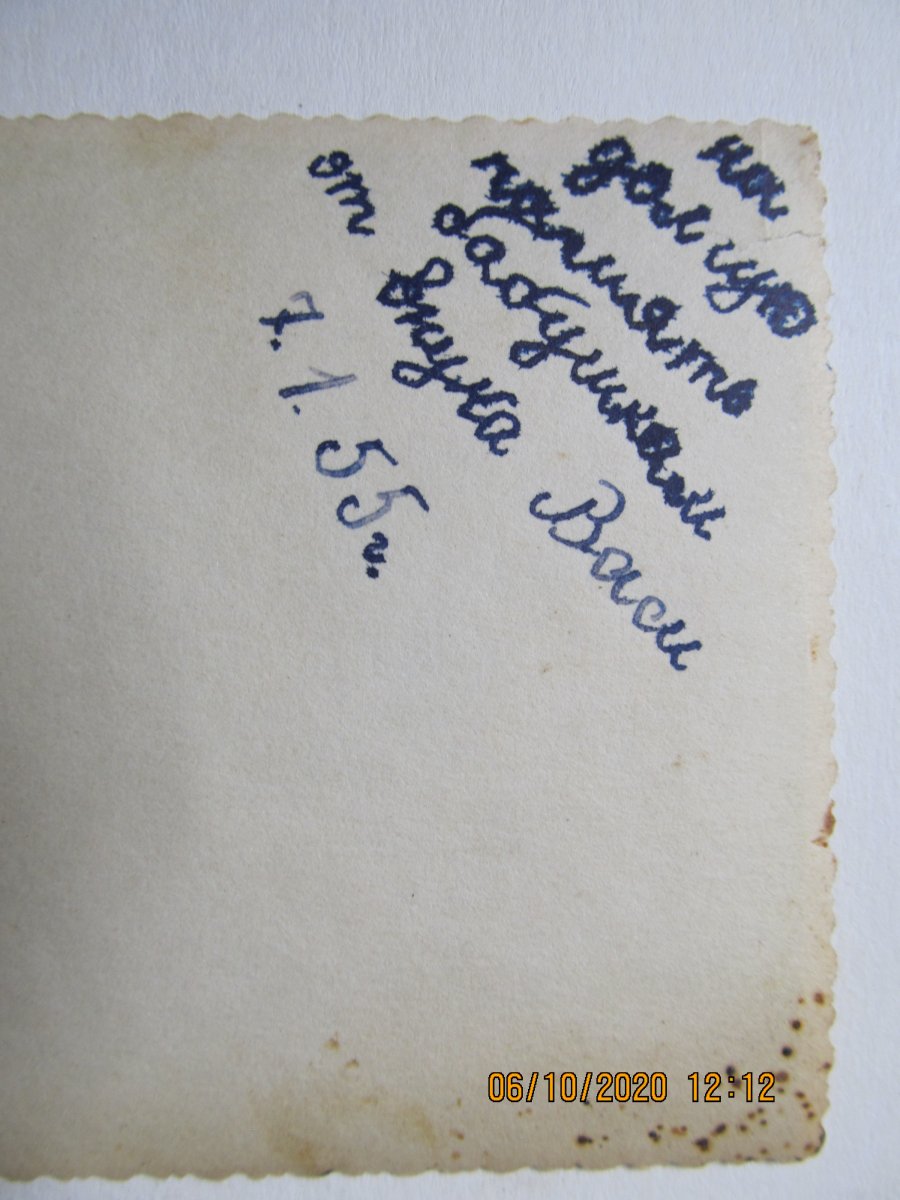 на
долгую
память
бабушкам
от внука Васи
7. 1. 55 г.
06/10/2020 12:12